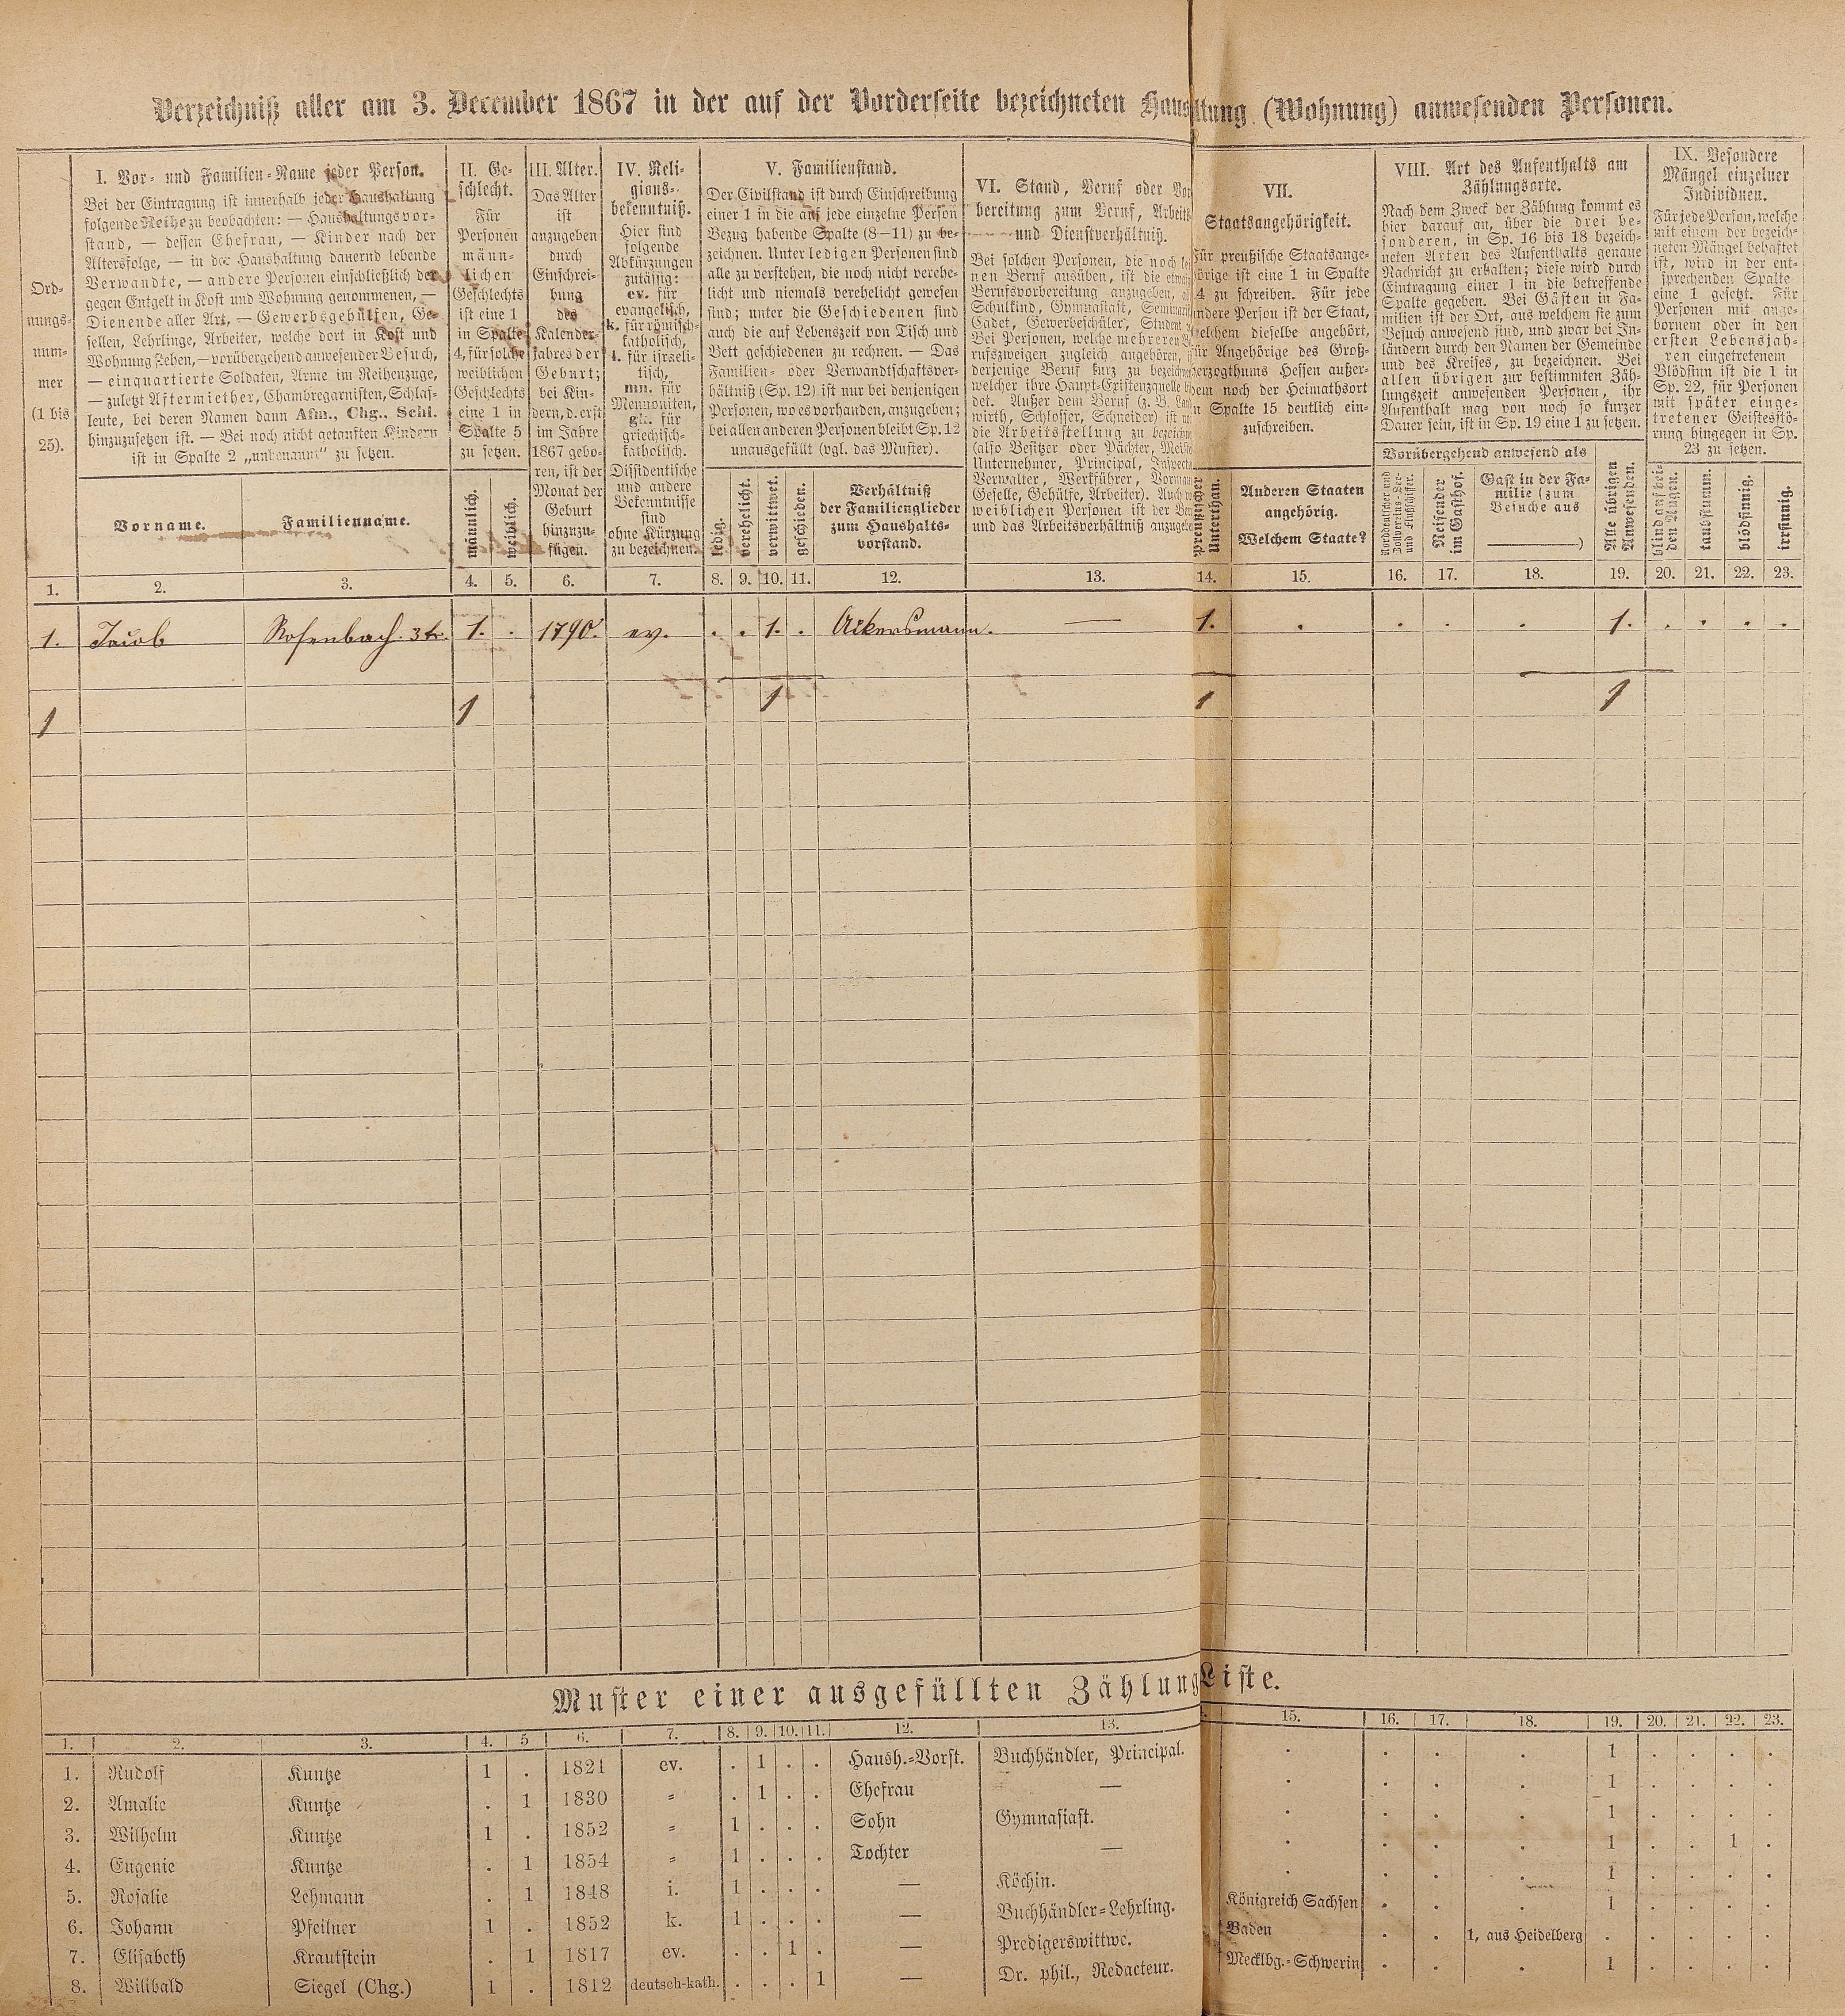 Verzeichniß aller am 3. December 1867 in der auf der Vorderseite bezeichneten Haus ltung (Wohnung) anwesenden Personen.
Ord-
nungs-
num-
mer
(1 bis
25).
I. Vor- und Familien-Name jeder Person.
Bei der Eintragung ist innerhalb jeder Haushaltung
folgende Reihe zu beobachten: — Haushaltungsvor-
stand, — dessen Ehefrau, — Kinder nach der
Altersfolge, — in der Haushaltung dauernd lebende
Verwandte, — andere Personen einschließlich der
gegen Entgelt in Kost und Wohnung genommenen, —
Dienende aller Art, — Gewerbsgehülfen, Ge-
sellen, Lehrlinge, Arbeiter, welche dort in Kost und
Wohnung stehen, — vorübergehend anwesender Besuch,
— einquartierte Soldaten, Arme im Reihenzuge,
— zuletzt Aftermiether, Chambregarnisten, Schlaf-
leute, bei deren Namen dann Afm., Chg., Schl.
hinzuzusetzen ist. — Bei noch nicht getauften Kindern
ist in Spalte 2 „unbenannt" zu setzen.
Vorname.
Familienname.
II. Ge-
schlecht.
Für
Personen
männ-
lichen
Geschlechts
ist eine 1
in Spalte
4, für solche
weiblichen
Geschlechts
eine 1 in
Spalte 5
zu setzen.
männlich.
weiblich.
III. Alter.
Das Alter
ist
anzugeben
durch
Einschrei-
bung
des
Kalender-
Jahres der
Geburt;
bei Kin-
dern, d. erst
im Jahre
1867 gebo-
ren, ist der
Monat der
Geburt
hinzuzu-
fügen.
IV. Reli-
gions-
bekenntniß.
Hier sind
folgende
Abkürzungen
zulässig:
ev. für
evangelisch,
k. für römisch-
katholisch,
i. für israeli-
tisch,
mn. für
Mennoniten,
gk. für
griechisch-
katholisch.
Dissidentische
und andere
Bekenntnisse
sind
ohne Kürzung
zu bezeichnen.
V. Familienstand.
Der Civilstand ist durch Einschreibung
einer 1 in die auf jede einzelne Person
Bezug habende Spalte (8—11) zu be-
zeichnen. Unter ledigen Personen sind
alle zu verstehen, die noch nicht verehe-
licht und niemals verehelicht gewesen
sind; unter die Geschiedenen sind
auch die auf Lebenszeit von Tisch und
Bett geschiedenen zu rechnen. — Das
Familien- oder Verwandtschaftsver-
hältniß (Sp. 12) ist nur bei denjenigen
Personen, wo es vorhanden, anzugeben;
bei allen anderen Personen bleibt Sp. 12
unausgefüllt (vgl. das Muster).
ledig.
verehelicht.
verwittwet.
geschieden.
Verhältniß
der Familienglieder
zum Haushalts-
vorstand.
VI. Stand, Beruf oder Vor
bereitung zum Beruf, Arbeits
und Dienstverhältniß.
Bei solchen Personen, die noch
nen Beruf ausüben, ist die
Berufsvorbereitung anzugeben,
Schulkind, Gymnasiast, Seminarist
Cadet, Gewerbeschüler, Student
Bei Personen, welche mehreren
rufszweigen zugleich angehören,
derjenige Beruf kurz zu bezeichnen
welcher ihre Haupt-Existenzquelle
det. Außer dem Beruf (z. B. Land
wirth, Schlosser, Schneider) ist
die Arbeitsstellung zu bezeichnen
(also Besitzer oder Pächter, Meister
Unternehmer, Principal, Inspector
Verwalter, Werkführer, Vormann
Geselle, Gehülfe, Arbeiter). Auch
weiblichen Personen ist der Beruf
und das Arbeitsverhältniß anzugeben
VII.
Staatsangehörigkeit.
Für preußische Staatsange-
hörige ist eine 1 in Spalte
14 zu schreiben. Für jede
andere Person ist der Staat,
welchem dieselbe angehört,
für Angehörige des Groß-
herzogthums Hessen außer-
dem noch der Heimathsort
in Spalte 15 deutlich ein-
zuschreiben.
Preußischer
Unterthan.
Anderen Staaten
angehörig.
Welchem Staate?
VIII. Art des Aufenthalts am
Zählungsorte.
Nach dem Zweck der Zählung kommt es
hier darauf an, über die drei be-
sonderen, in Sp. 16 bis 18 bezeich-
neten Arten des Aufenthalts genaue
Nachricht zu erhalten; diese wird durch
Eintragung einer 1 in die betreffende
Spalte gegeben. Bei Gästen in Fa-
milien ist der Ort, aus welchem sie zum
Besuch anwesend sind, und zwar bei In-
ländern durch den Namen der Gemeinde
und des Kreises, zu bezeichnen. Bei
allen übrigen zur bestimmten Zäh-
lungszeit anwesenden Personen, ihr
Aufenthalt mag von noch so kurzer
Dauer sein, ist in Sp. 19 eine 1 zu setzen.
Vorübergehend anwesend als
Norddeutscher und
Zollvereins-See-
und Flußschiffer.
Reisender
im Gasthof.
Gast in der Fa-
milie (zum
Besuche aus
————)
Alle übrigen
Anwesenden.
IX. Besondere
Mängel einzelner
Individuen.
Für jede Person, welche
mit einem der bezeich-
neten Mängel behaftet
ist, wird in der ent-
sprechenden Spalte
eine 1 gesetzt. Für
Personen mit ange-
bornem oder in den
ersten Lebensjah-
ren eingetretenem
Blödsinn ist die 1 in
Sp. 22, für Personen
mit später einge-
tretener Geistesstö-
rung hingegen in Sp.
23 zu setzen.
blind auf bei-
den Augen.
taubstumm.
blödsinnig.
irrsinnig.
1. 2. 3. 4. 5. 6. 7. 8. 9. 10. 11. 12. 13. 14. 15. 16. 17. 18. 19. 20. 21. 22. 23.
1. Jacob Rosenbach. 3tr. 1. . 1790. ev. . . 1. . Ackersmann. — 1. . . . . 1. . . . .
1 1 1 1 1
Muster einer ausgefüllten Zählung Liste.
1. 2. 3. 4. 5 6. 7. 8. 9. 10. 11. 12. 13. 15. 16. 17. 18. 19. 20. 21. 22. 23.
1. Rudolf Kuntze 1 . 1821 ev. . 1 . . Haush.-Vorst. Buchhändler, Principal. . . . . 1 . . . .
2. Amalie Kuntze . 1 1830 " . 1 . . Ehefrau — . . . . 1 . . . .
3. Wilhelm Kuntze 1 . 1852 " 1 . . . Sohn Gymnasiast. . . . . 1 . . . .
4. Eugenie Kuntze . 1 1854 " 1 . . . Tochter — . . . . 1 . . 1 .
5. Rosalie Lehmann . 1 1848 i. 1 . . . — Köchin. . . . . 1 . . . .
6. Johann Pfeilner 1 . 1852 k. 1 . . . — Buchhändler-Lehrling. Königreich Sachsen . . . 1 . . . .
7. Elisabeth Krautstein . 1 1817 ev. . . 1 . — Predigerswittwe. Baden . . 1, aus Heidelberg . . . . .
8. Wilibald Siegel (Chg.) 1 . 1812 deutsch-kath. . . . 1 — Dr. phil., Redacteur. Mecklbg.-Schwerin . . . 1 . . . .